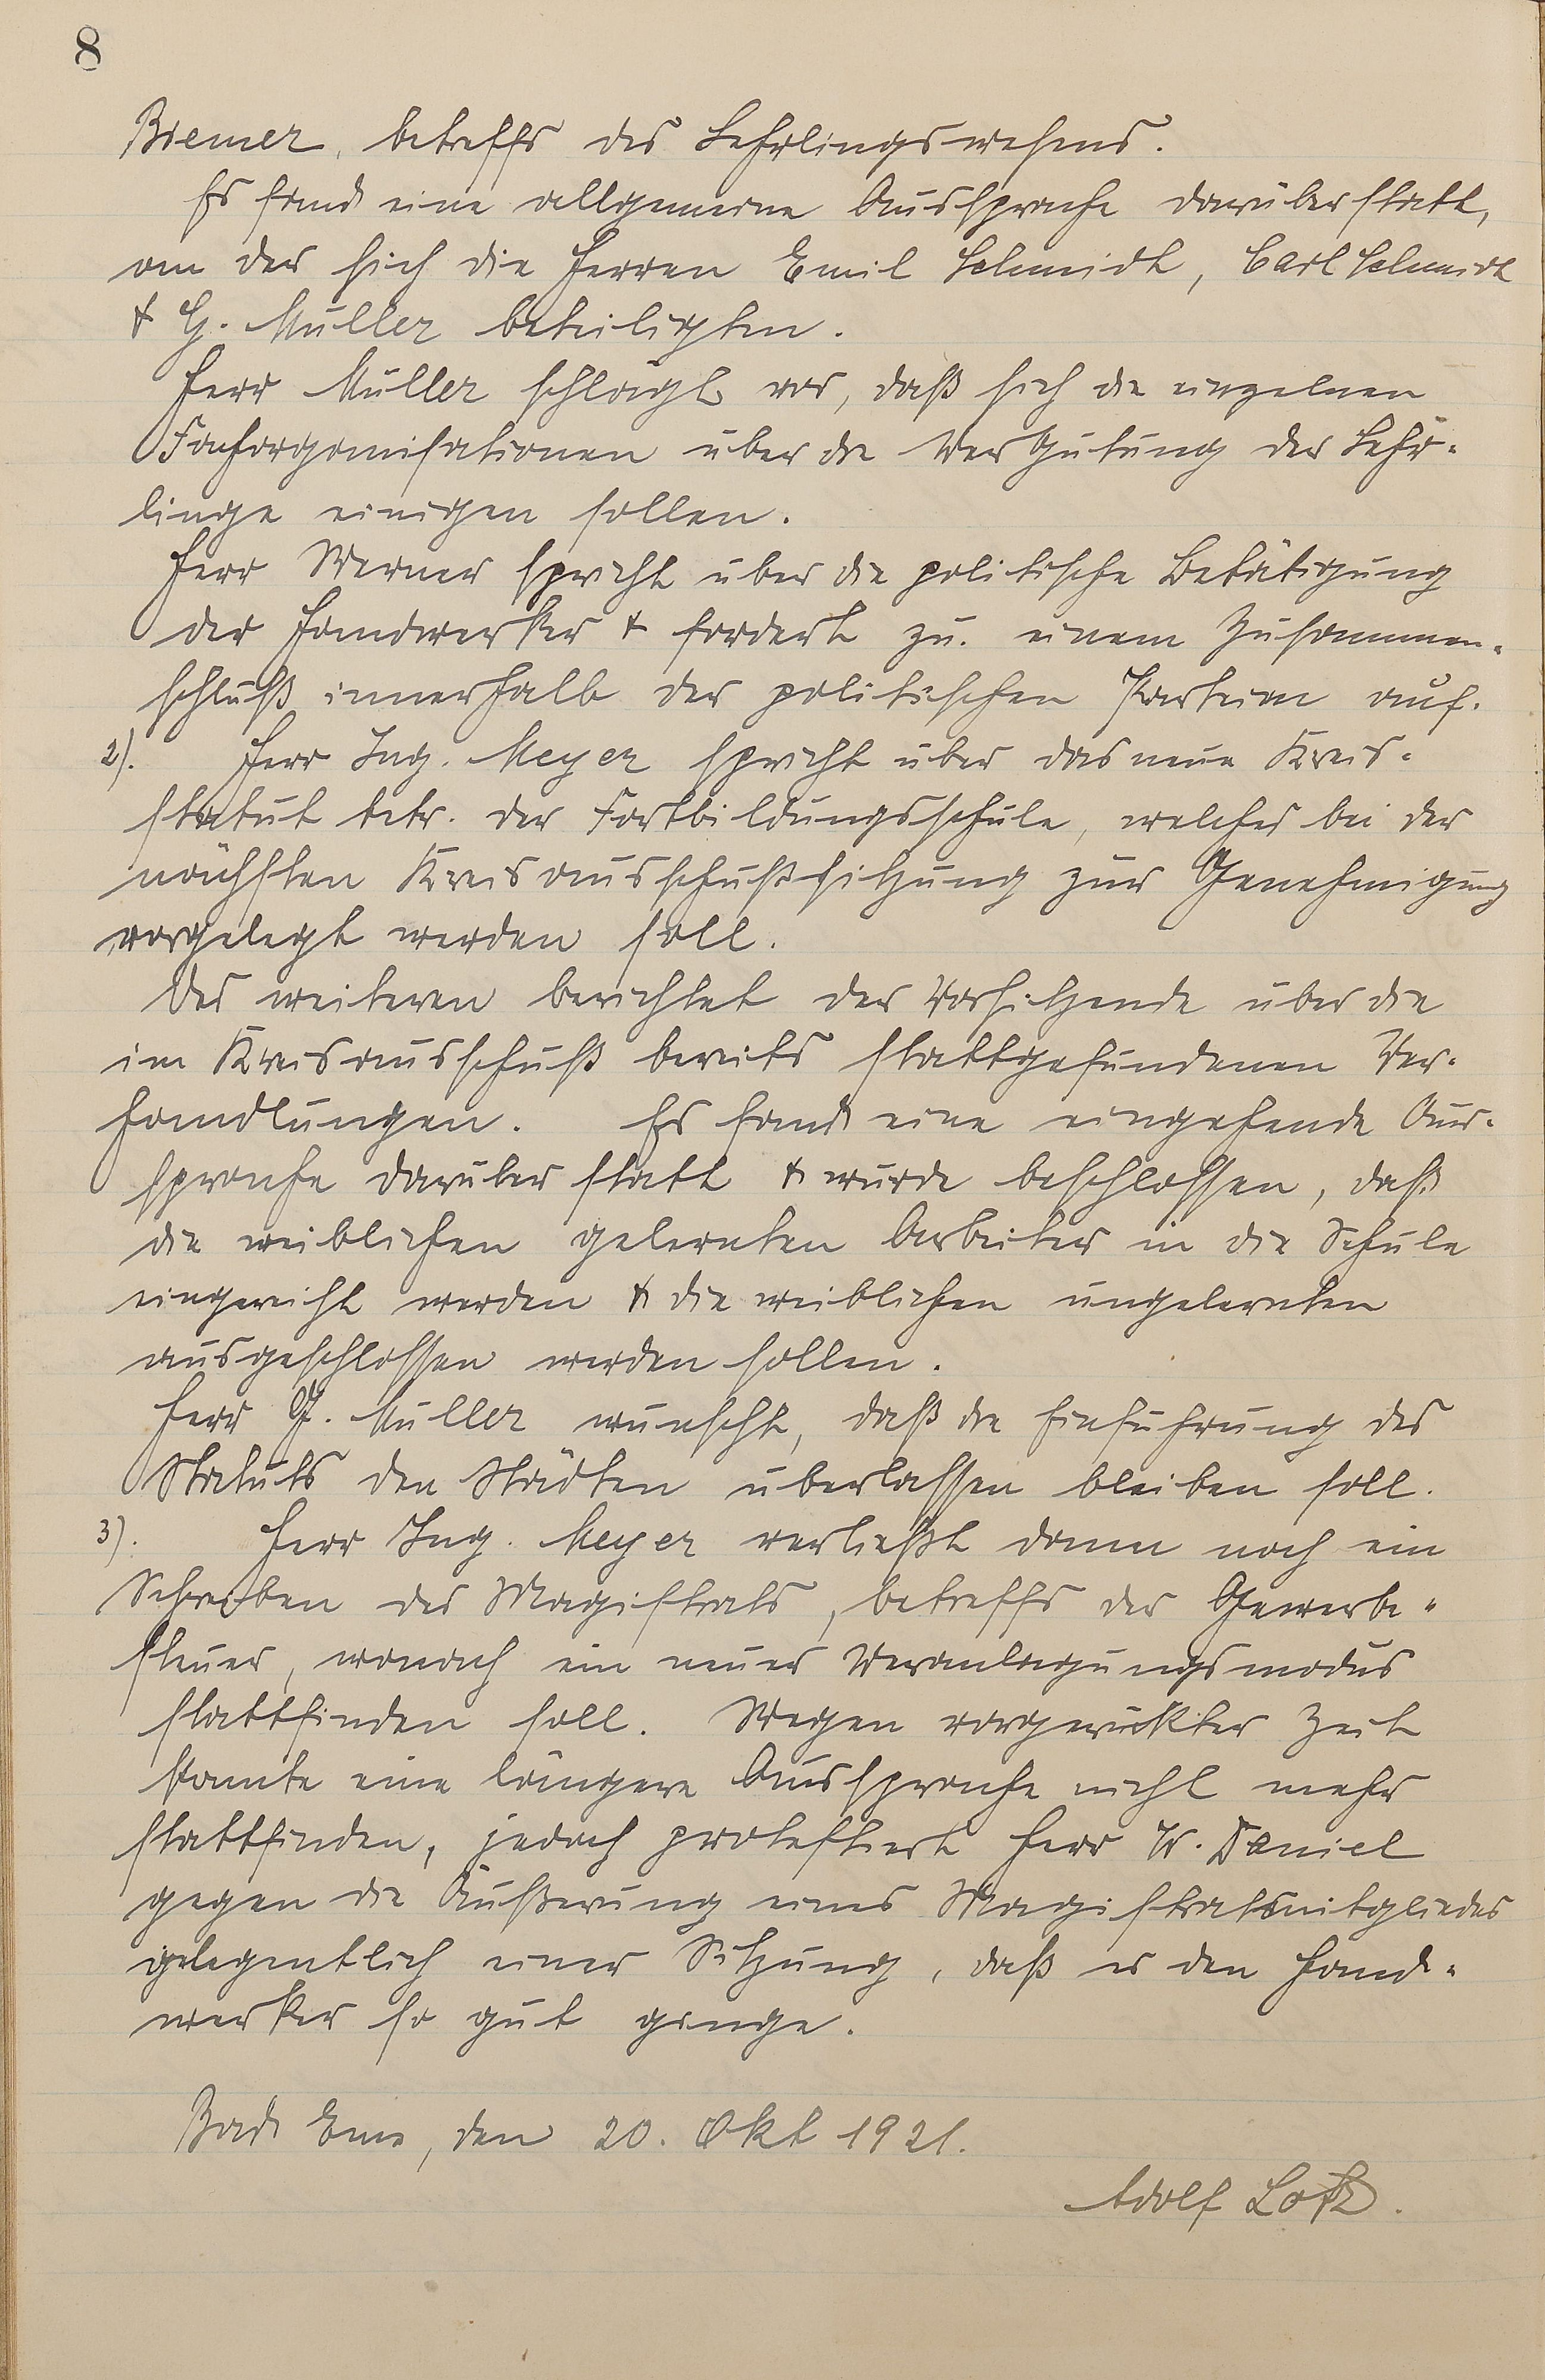 8
Biemer, betreffs des Lehrlingswesens.
Es fand eine allgemeine Aussprache darüber statt,
an der sich die Herren Emil Schmidt, Carl Schmidt
& G. Müller beteiligten.
Herr Müller schlägt vor, daß sich die einzelnen
Fachorganisationen über die Vergütung der Lehr-
linge einigen sollen.
Herr Werner spricht über die politische Betätigung
der Handwerker & fordert zu einem Zusammen-
schluß innerhalb der politischen Parteien auf.
2). Herr Ing. Meyer spricht über das neue Kreis-
statut betr. der Fortbildungsschule, welches bei der
nächsten Kreisausschußsitzung zur Genehmigung
vorgelegt werden soll.
Des weiteren berichtet der Vorsitzende über die
im Kreisausschuß bereits stattgefundenen Ver-
handlungen. Es fand eine eingehende Aus-
sprache darüber statt & wurde beschlossen, daß
die weiblichen gelernten Arbeiter in die Schule
eingereiht werden & die weiblichen ungelernten
ausgeschlossen werden sollen.
Herr G. Müller wünscht, daß die Einführung des
Statuts den Städten überlassen bleiben soll.
3). Herr Ing. Meyer verließt dann noch ein
Schreiben des Magistrats, betreffs der Gewerbe-
steuer, wonach ein neuer Veranlagungsmodus
stattfinden soll. Wegen vorgerückter Zeit
konnte eine längere Aussprache nicht mehr
stattfinden, jedoch protestiert Herr W. Daniel
gegen die Äußerung eines Magistratsmitgliedes
gelegentlich einer Sitzung, daß es den Hand-
werker so gut ginge.
Bad Ems, den 20. Okt 1921.
Adolf Lotz.